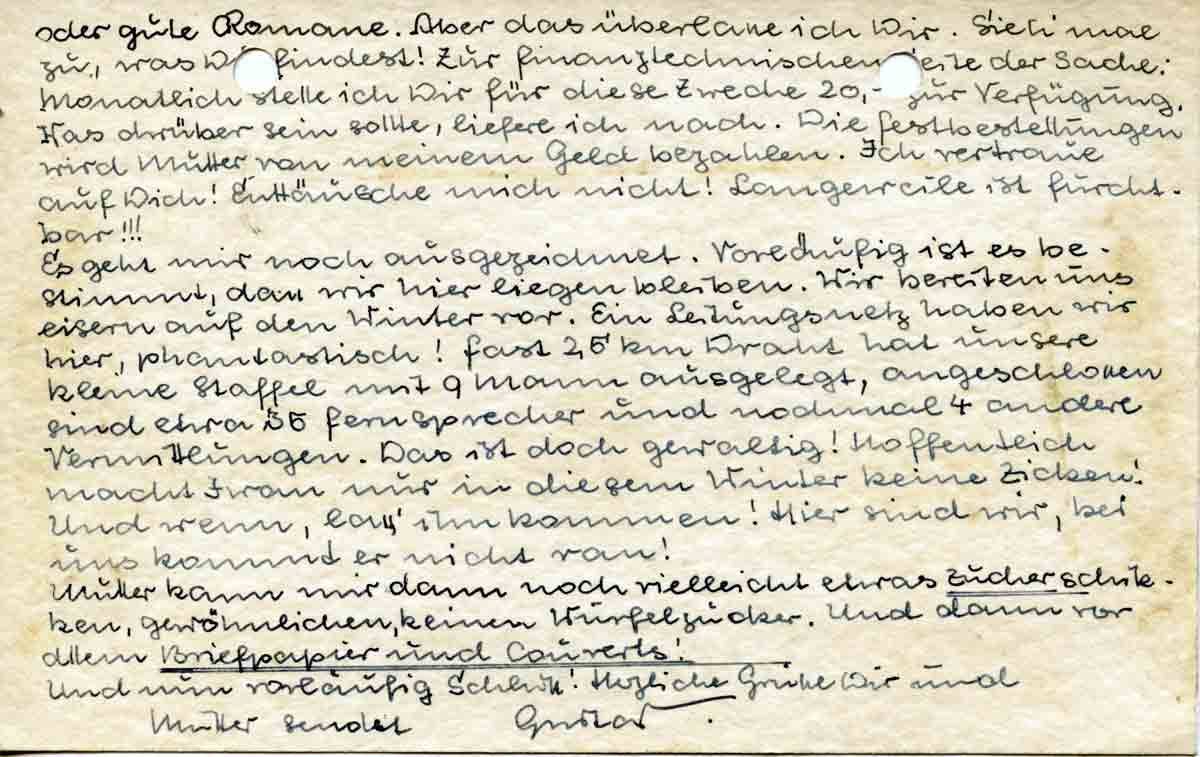 oder gute Romane. Aber das überlasse ich Dir. Sieh mal
zu, was Du findest! Zur finanztechnischen Seite der Sache:
Monatlich stelle ich Dir für diese Zwecke 20,- zur Verfügung.
Was drüber sein sollte, liefere ich nach. Die Festbestellungen
wird Mutter von meinem Geld bezahlen. Ich vertraue
auf Dich! Enttäusche mich nicht! Langeweile ist furcht-
bar!!!
Es geht mir noch ausgezeichnet. Vorläufig ist es be-
stimmt, dass wir hier liegen bleiben. Wir bereiten uns
eisern auf den Winter vor. Ein Leitungsnetz haben wir
hier, phantastisch! Fast 25 km Draht hat unsere
kleine Staffel mit 9 Mann ausgelegt, angeschlossen
sind etwa 35 Fernsprecher und nochmal 4 andere
Vermittlungen. Das ist doch gewaltig! Hoffentlich
macht Iwan nur in diesem Winter keine Zicken!
Und wenn, lass' ihn kommen! Hier sind wir, bei
uns kommt er nicht ran!
Mutter kann mir dann noch vielleicht etwas Zucker schik-
ken, gewöhnlichen, keinen Würfelzucker. Und dann vor
allem Briefpapier und Couverts!
Und nun vorläufig Schluss! Herzliche Grüsse Dir und
Mutter sendet Gustav.